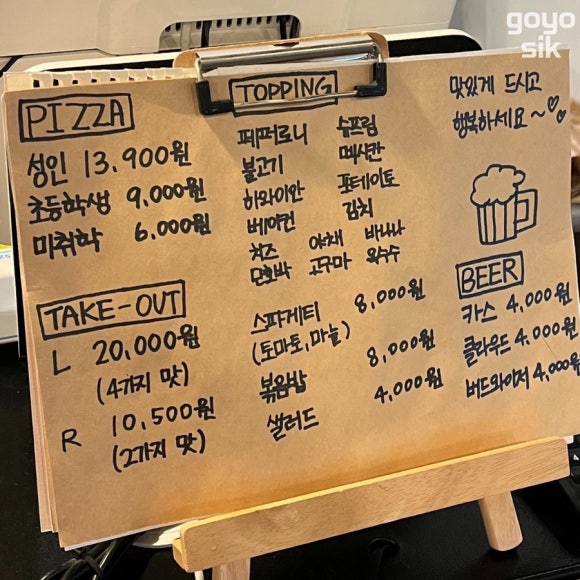 goyo
sik
PIZZA
성인 13,900원
초등학생 9,000원
미취학 6,000원
TAKE-OUT
L 20,000원
(4가지 맛)
R 10,500원
(2가지 맛)
TOPPING
페퍼로니 슈프림
불고기 멕시칸
하와이안 포테이토
베이컨 김치
치즈 야채 바나나
단호박 고구마 옥수수
스파게티 8,000원
(토마토, 마늘)
볶음밥 8,000원
샐러드 4,000원
맛있게 드시고
행복하세요~♡♡
BEER
카스 4,000원
클라우드 4,000원
버드와이저 4,000원